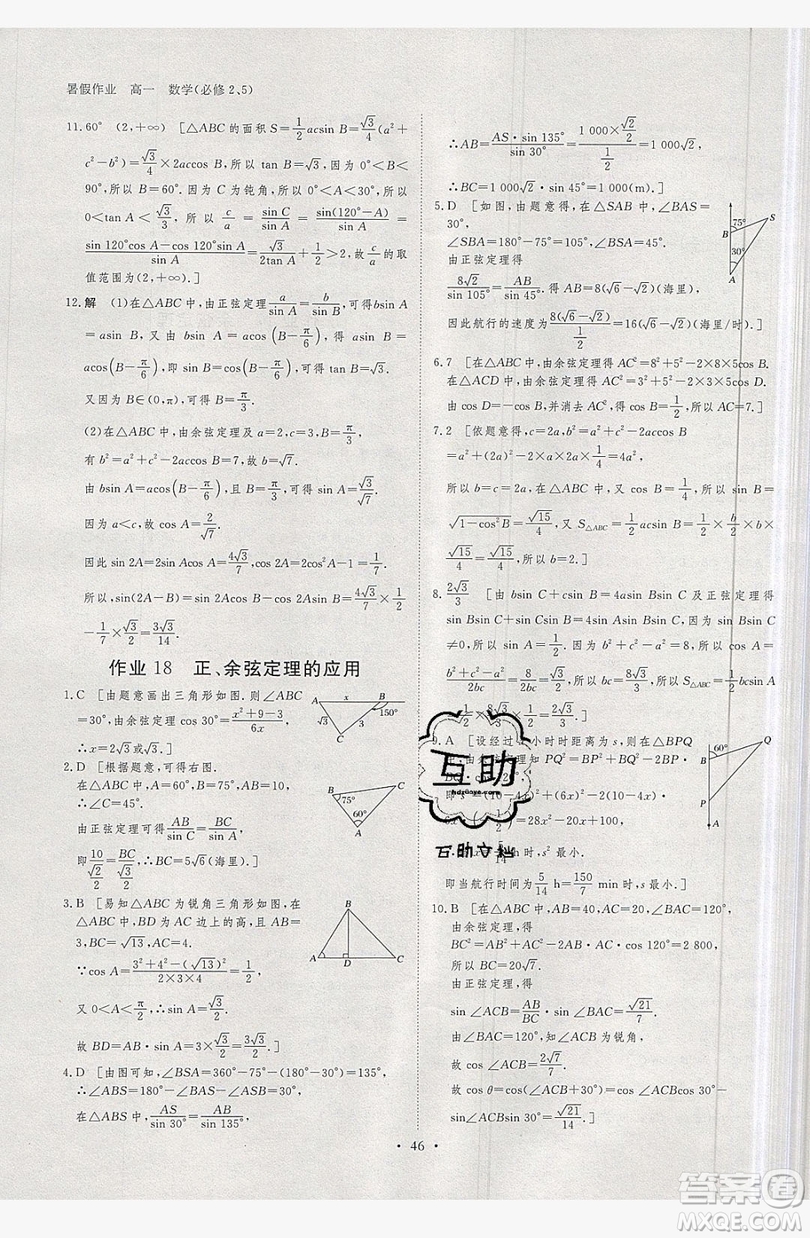 暑假作业 高一 数学(必修2、5)
11.60° (2,+∞) [△ABC的面积S=1/2 acsin B=√3/4(a²+
c²-b²)=√3/4×2accos B,所以 tan B=√3,因为0°<B<
90°,所以B=60°.因为C为钝角,所以0°<A<30°,所以
0<tan A<√3/3,所以 c/a=sin C/sin A=sin(120°-A)/sin A=
(sin 120°cos A-cos 120°sin A)/sin A=√3/(2tan A)+1/2>2,故c/a的取
值范围为(2,+∞).]
12.解 (1)在△ABC中,由正弦定理a/sin A=b/sin B,可得bsin A
=asin B,又由 bsin A=acos(B-π/6),得 asin B=
acos(B-π/6),即 sin B=cos(B-π/6),可得 tan B=√3.
又因为B∈(0,π),可得B=π/3.
(2)在△ABC中,由余弦定理及a=2,c=3,B=π/3,
有b²=a²+c²-2accos B=7,故b=√7.
由 bsin A=acos(B-π/6),且B=π/3,可得 sin A=√3/√7.
因为a<c,故 cos A=2/√7.
因此 sin 2A=2sin Acos A=4√3/7,cos 2A=2cos²A-1=1/7.
所以,sin(2A-B)=sin 2Acos B-cos 2Asin B=4√3/7×1/2
-1/7×√3/2=3√3/14.
作业18 正、余弦定理的应用
1.C [由题意画出三角形如图.则∠ABC
=30°,由余弦定理得 cos 30°=(x²+9-3)/6x,
∴x=2√3或√3.]
2.D [根据题意,可得右图.
在△ABC中,A=60°,B=75°,AB=10,
∴C=45°.
由正弦定理可得AB/sin C=BC/sin A,
即10/(√2/2)=BC/(√3/2),∴BC=5√6(海里).]
3.B [易知△ABC为锐角三角形.如图.在
△ABC中,BD为AC边上的高,且AB=
3,BC=√13,AC=4.
∵cos A=(3²+4²-(√13)²)/(2×3×4)=1/2,
又0<A<π/2,∴sin A=√3/2.
故BD=AB·sin A=3×√3/2=3√3/2.]
4.D [由图可知:∠ABS=360°-75°-(180°-30°)=135°,
∴∠ASB=180°-∠ABS-∠BAS=180°-135°-30°=15°.
在△ABS中,AS/sin 30°=AB/sin 15°=AS/sin 135°,
∴AB=AS·sin 135°/sin 30°=(1 000×√2/2)/(1/2)=1 000√2.
∴BC=AB·sin 45°=1 000(m).]
5.D [如图,由题意得,在△SAB中,∠BAS=
30°,
∠SBA=180°-75°=105°,∠BSA=45°.
由正弦定理得
8√2/sin 105°=AB/sin 45°,得AB=8(√6-√2)(海里),
因此航行的速度为8(√6-√2)/(1/2)=16(√6-√2)(海里/时).]
6.7 [在△ABC中,由余弦定理得AC²=8²+5²-2×8×5cos B.
在△ACD中,由余弦定理得AC²=3²+5²-2×3×5cos D,
由 cos D=-cos B,并消去AC²,得AC=7.]
7.2 [依题意得,c=2a,b²=a²+c²-2accos B
=a²+(2a)²-2×a×2a×1/4=4a².
所以b=c=2a,在△ABC中,因为cos B=1/4,所以sin B=
√(1-cos²B)=√15/4,又 S△ABC=1/2acsin B=1/2×b/2×b×
√15/4=√15/4,所以b=2.]
8.2√3/3 [由 bsin C+csin B=4asin Bsin C及正弦定理得
sin Bsin C+sin Csin B=4sin Asin Bsin C.又 sin Bsin C
≠0,所以 sin A=1/2.由余弦定理得 cos A=(b²+c²-a²)/2bc=
8/2bc=4/bc>0,所以cos A=√3/2,bc=8√3/3,所以S△ABC=1/2bcsin A
=1/2×8√3/3×1/2=2√3/3.]
9.A [设经过 小时时距离为s,则在△BPQ
BQ·cos 120°,
即s² (10-4x)²+(6x)²-2(10-4x)×6x×
=28x²-20x+100.
5/14 h时,s²最小.
即当航行时间为5/14 h=150/7 min时,s²最小.]
10.B [在△ABC中,AB=40,AC=20,∠BAC=120°,
由余弦定理得
BC²=AB²+AC²-2AB·AC·cos 120°=2 800,
所以BC=20√7.
由正弦定理得
sin ∠ACB=AB/BC·sin ∠BAC=√21/7.
由∠BAC=120°,知∠ACB为锐角,
故 cos ∠ACB=2√7/7.
故 cos θ=cos(∠ACB+30°)
=cos ∠ACBcos 30°-sin ∠ACBsin 30°=√21/14.]
• 46 •
互助
互助文档
答案圈
MXQE.COM